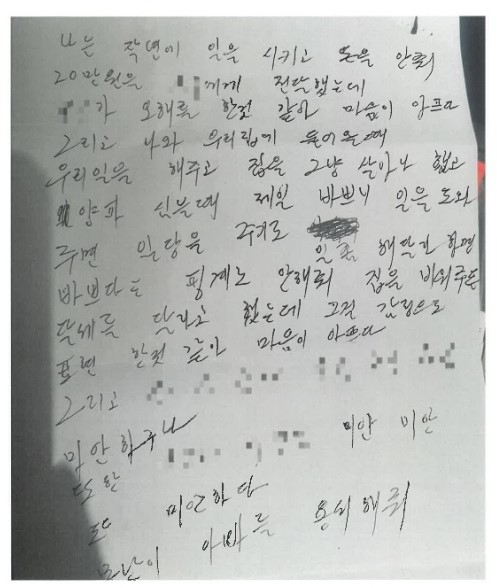 나는 작년에 일을 시키고 돈을 안줘
20만원을 에게 전달했는데
가 오해를 한것 같아 마음이 앞프다
그리고 나와 우리집에 들어올때
우리일을 해주고 집을 그냥 살아나 했고
양파 심을때 제일 바쁘니 일을 도와
주면 일당을 주기로 일좀 해달라 하면
바쁘다는 핑게로 안해줘 집을 비워주든
달세를 달라고 했는데 그걸 감정으로
표현 한것 같아 마음이 아프다
그리고
미안하구나 미안 미안
또한
또 미안하다
못난이 아빠를 용서해줘